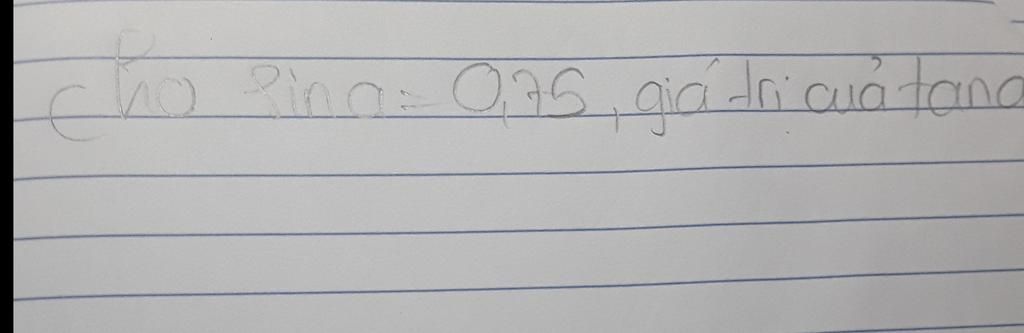 Cho sina = 0,75, giá trị cuả tana